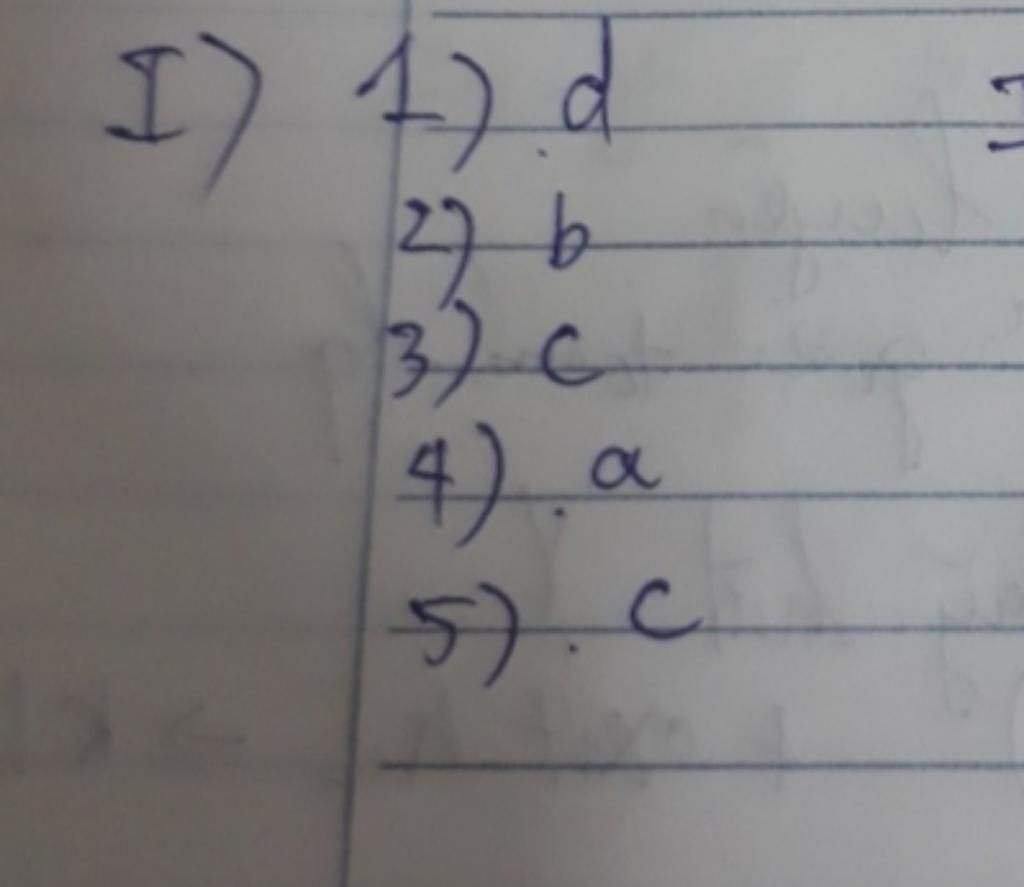 I) 1) . d
2) b
3) c
4) . a
5) . c